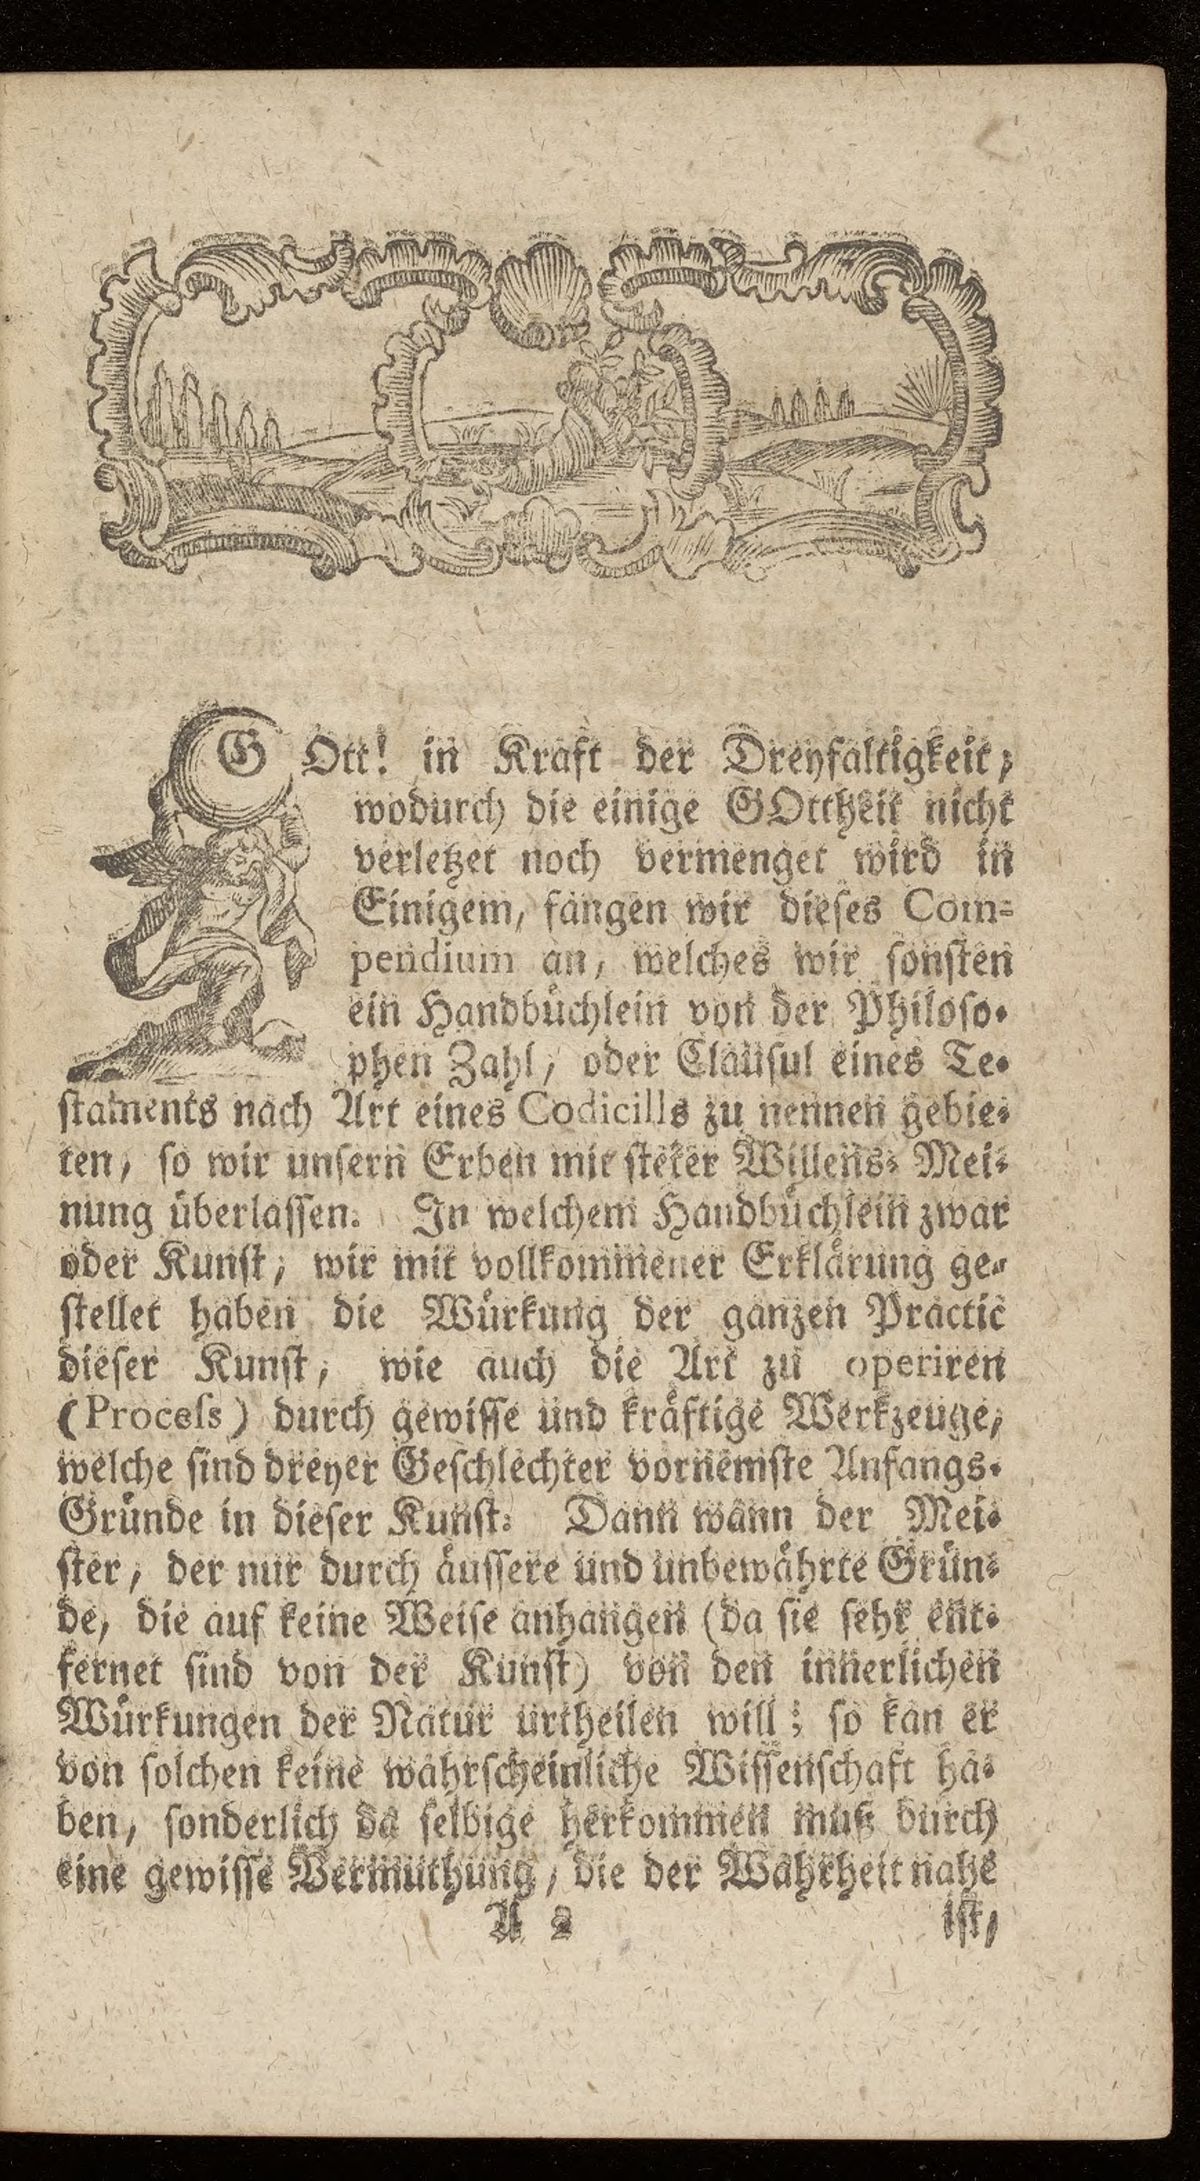 GOtt! in Kraft der Dreyfaltigkeit,
wodurch die einige GOttheit nicht
verletzet noch vermenget wird in
Einigem, fangen wir dieses Com-
pendium an, welches wir sonsten
ein Handbüchlein von der Philoso-
phen Zahl, oder Clausul eines Te-
staments nach Art eines Codicills zu nennen gebie-
ten, so wir unsern Erben mit steter Willens-Mei-
nung überlassen. In welchem Handbüchlein zwar
oder Kunst, wir mit vollkommener Erklärung ge-
stellet haben die Würkung der ganzen Practic
dieser Kunst, wie auch die Art zu operiren
(Process) durch gewisse und kräftige Werkzeuge,
welche sind dreyer Geschlechter vornemste Anfangs-
Gründe in dieser Kunst. Dann wann der Mei-
ster, der nur durch äussere und unbewährte Grün-
de, die auf keine Weise anhangen (da sie sehr ent-
fernet sind von der Kunst) von den innerlichen
Würkungen der Natur urtheilen will; so kan er
von solchen keine wahrscheinliche Wissenschaft ha-
ben, sonderlich da selbige herkommen muß durch
eine gewisse Vermuthung, die der Wahrheit nahe
A 2 ist,